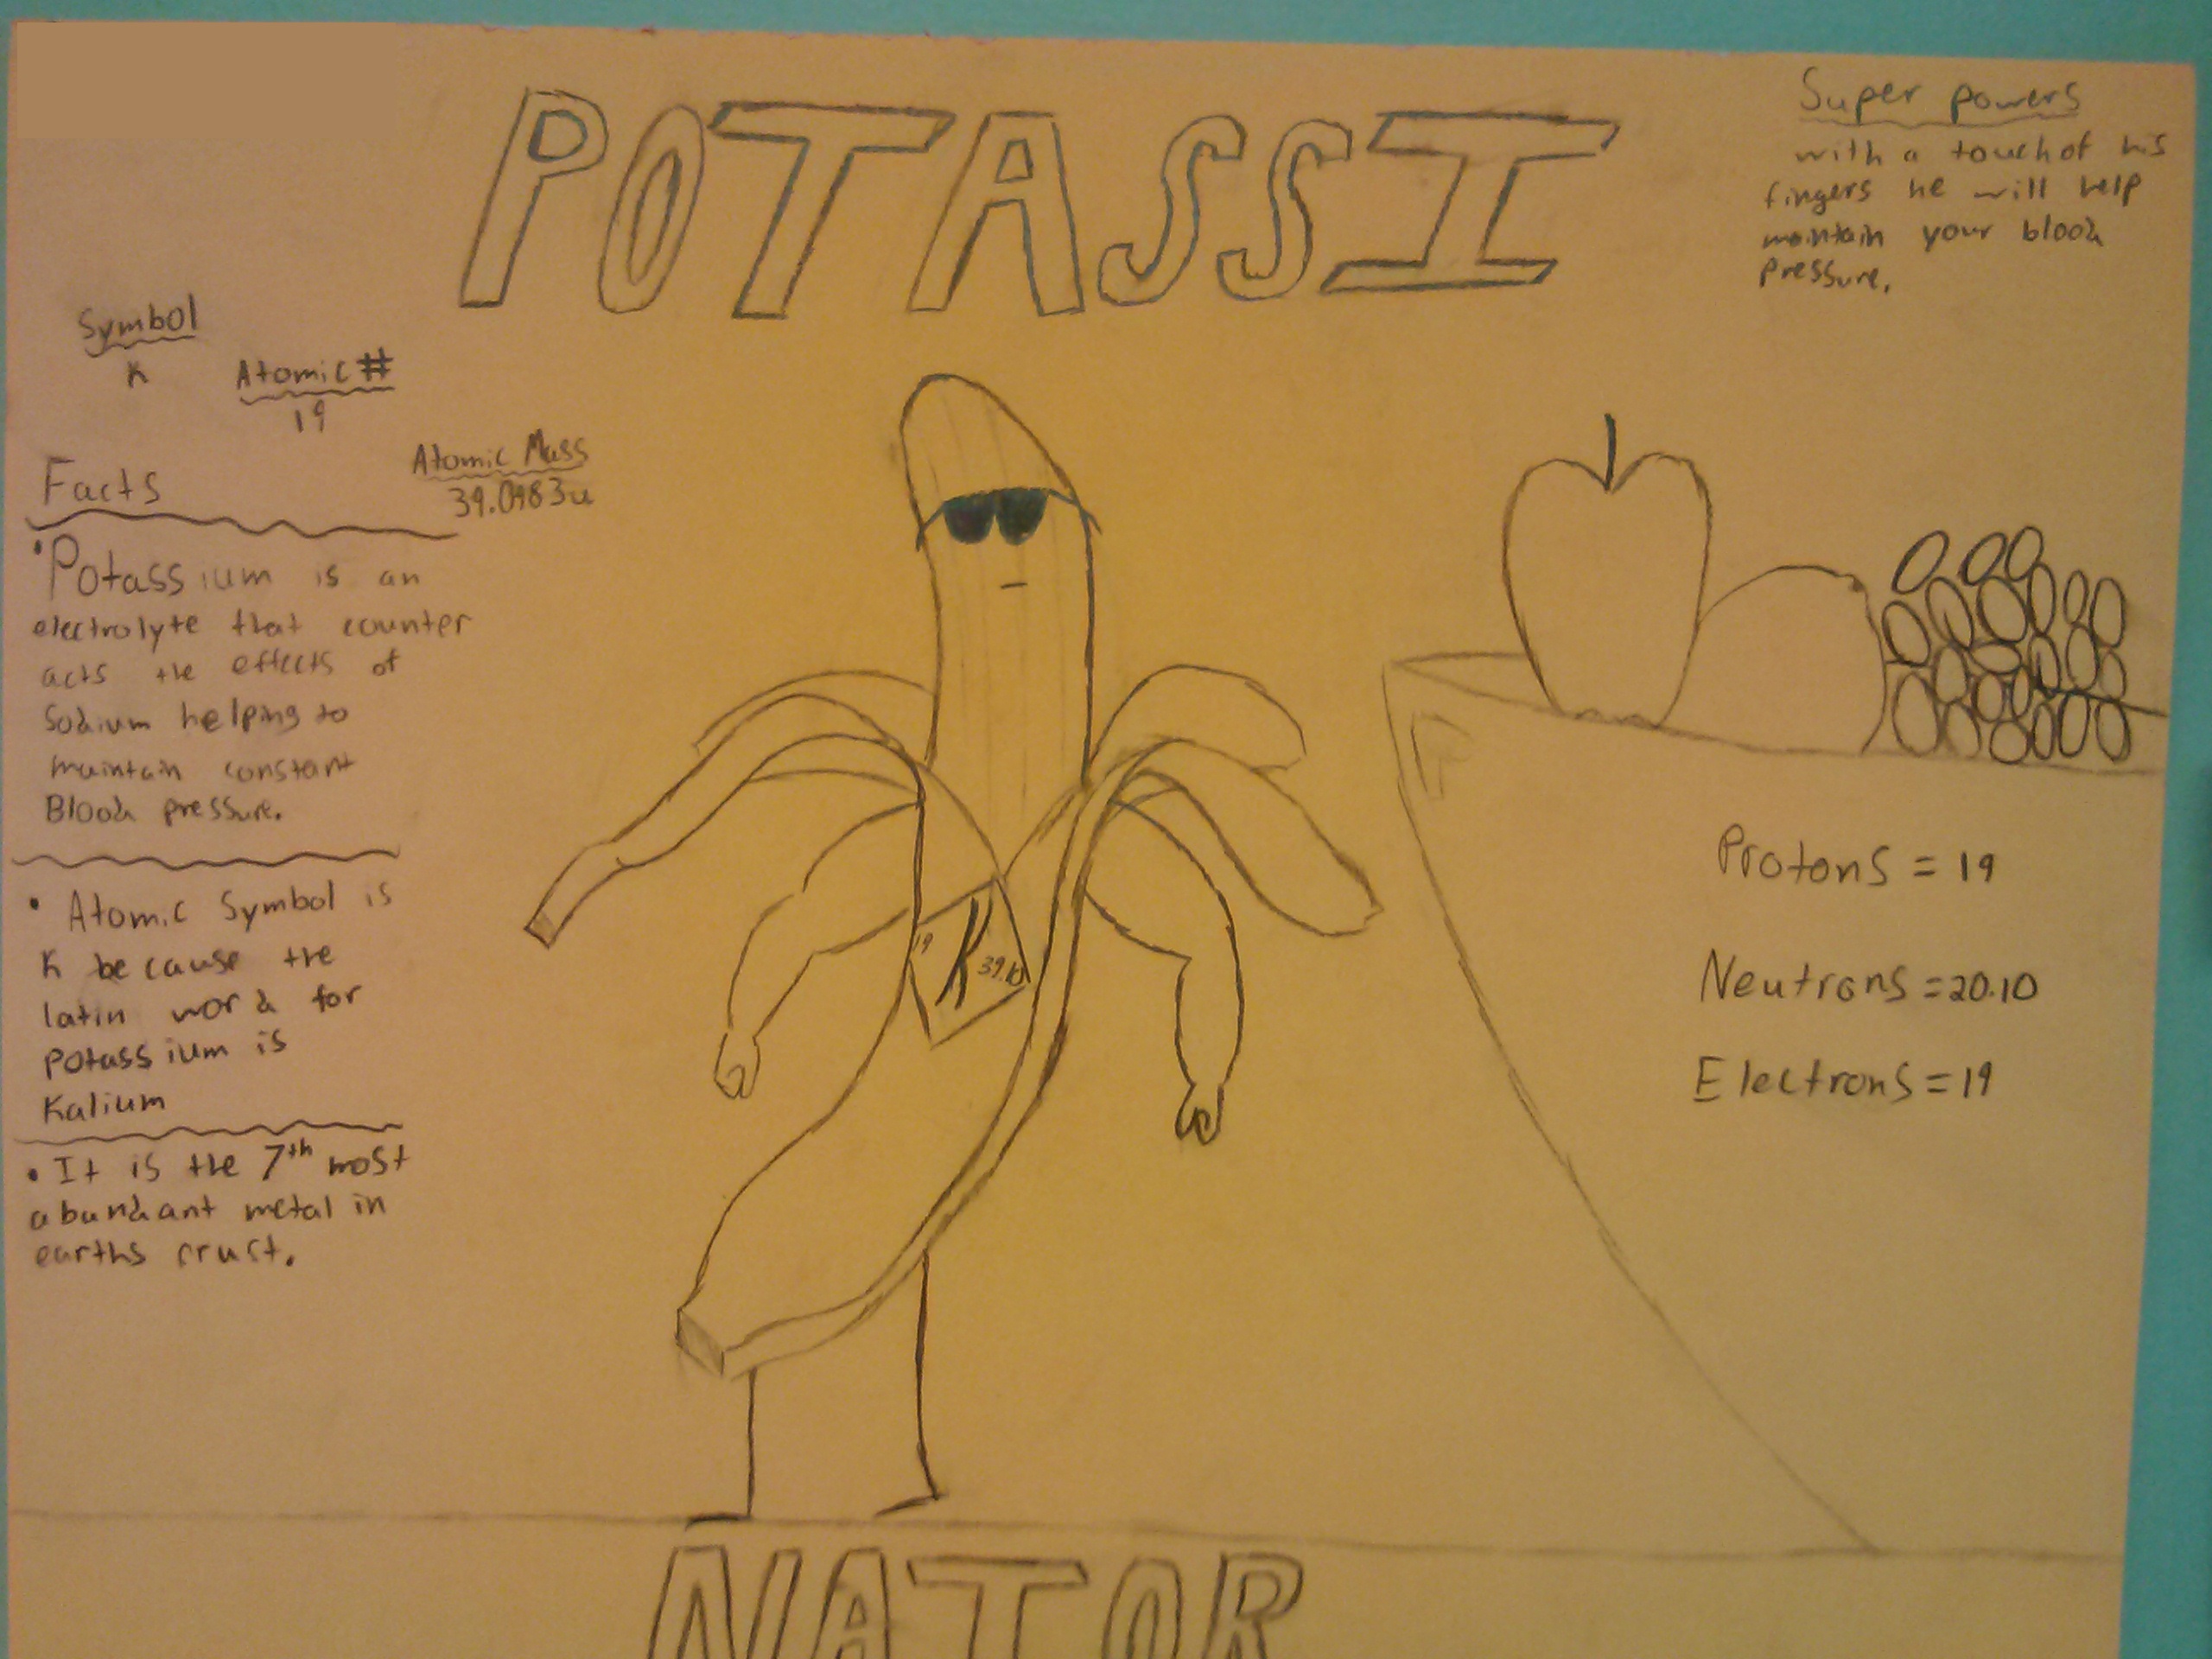 POTASSI
Super powers
with a touch of his
fingers he will help
maintain your blood
pressure.
Symbol
K
Atomic #
19
Atomic Mass
39.0983u
Facts
• Potassium is an
electrolyte that counter
acts the effects of
Sodium helping to
maintain constant
Blood pressure.
• Atomic Symbol is
K because the
latin word for
potassium is
Kalium
• It is the 7th most
abundant metal in
earths crust.
19 K 39.10
Protons = 19
Neutrons = 20.10
Electrons = 19
NATOR